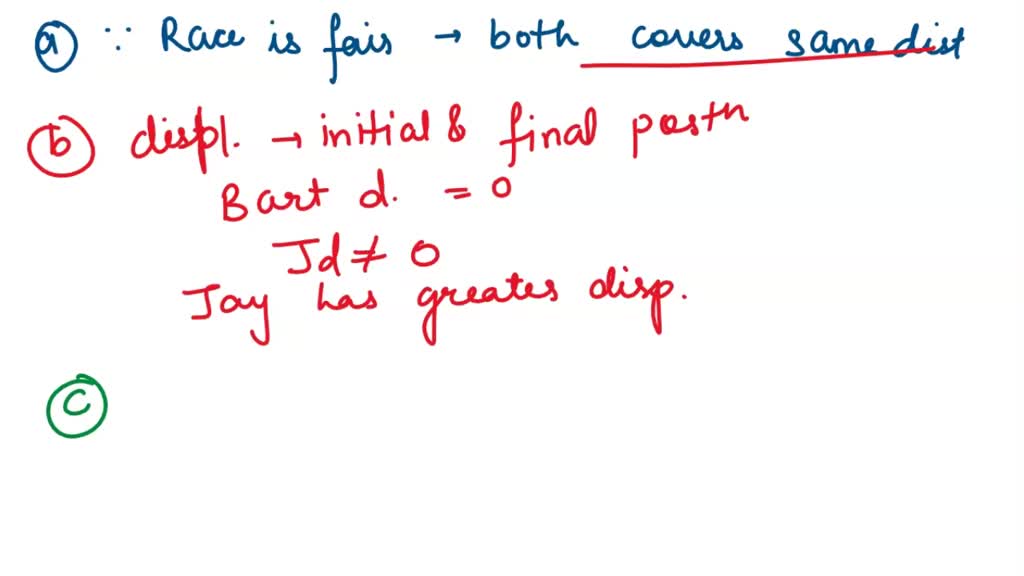 a ∵ Race is fair → both covers same dist
b displ. → initial & final postn
Bart d. = 0
Jd ≠ 0
Jay has greates disp.
C